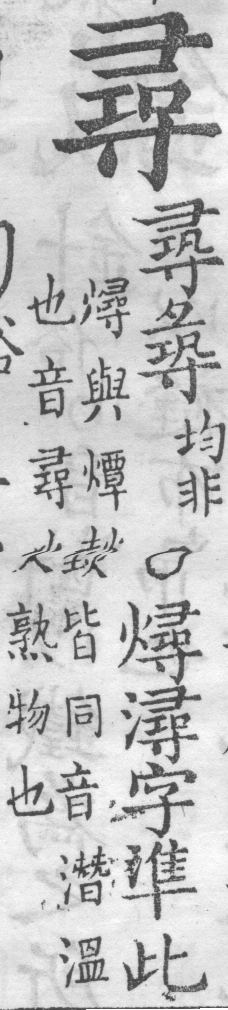 尋
均非
○燖潯字準此
燖與燂皆同音潛溫
也音尋火熟物也